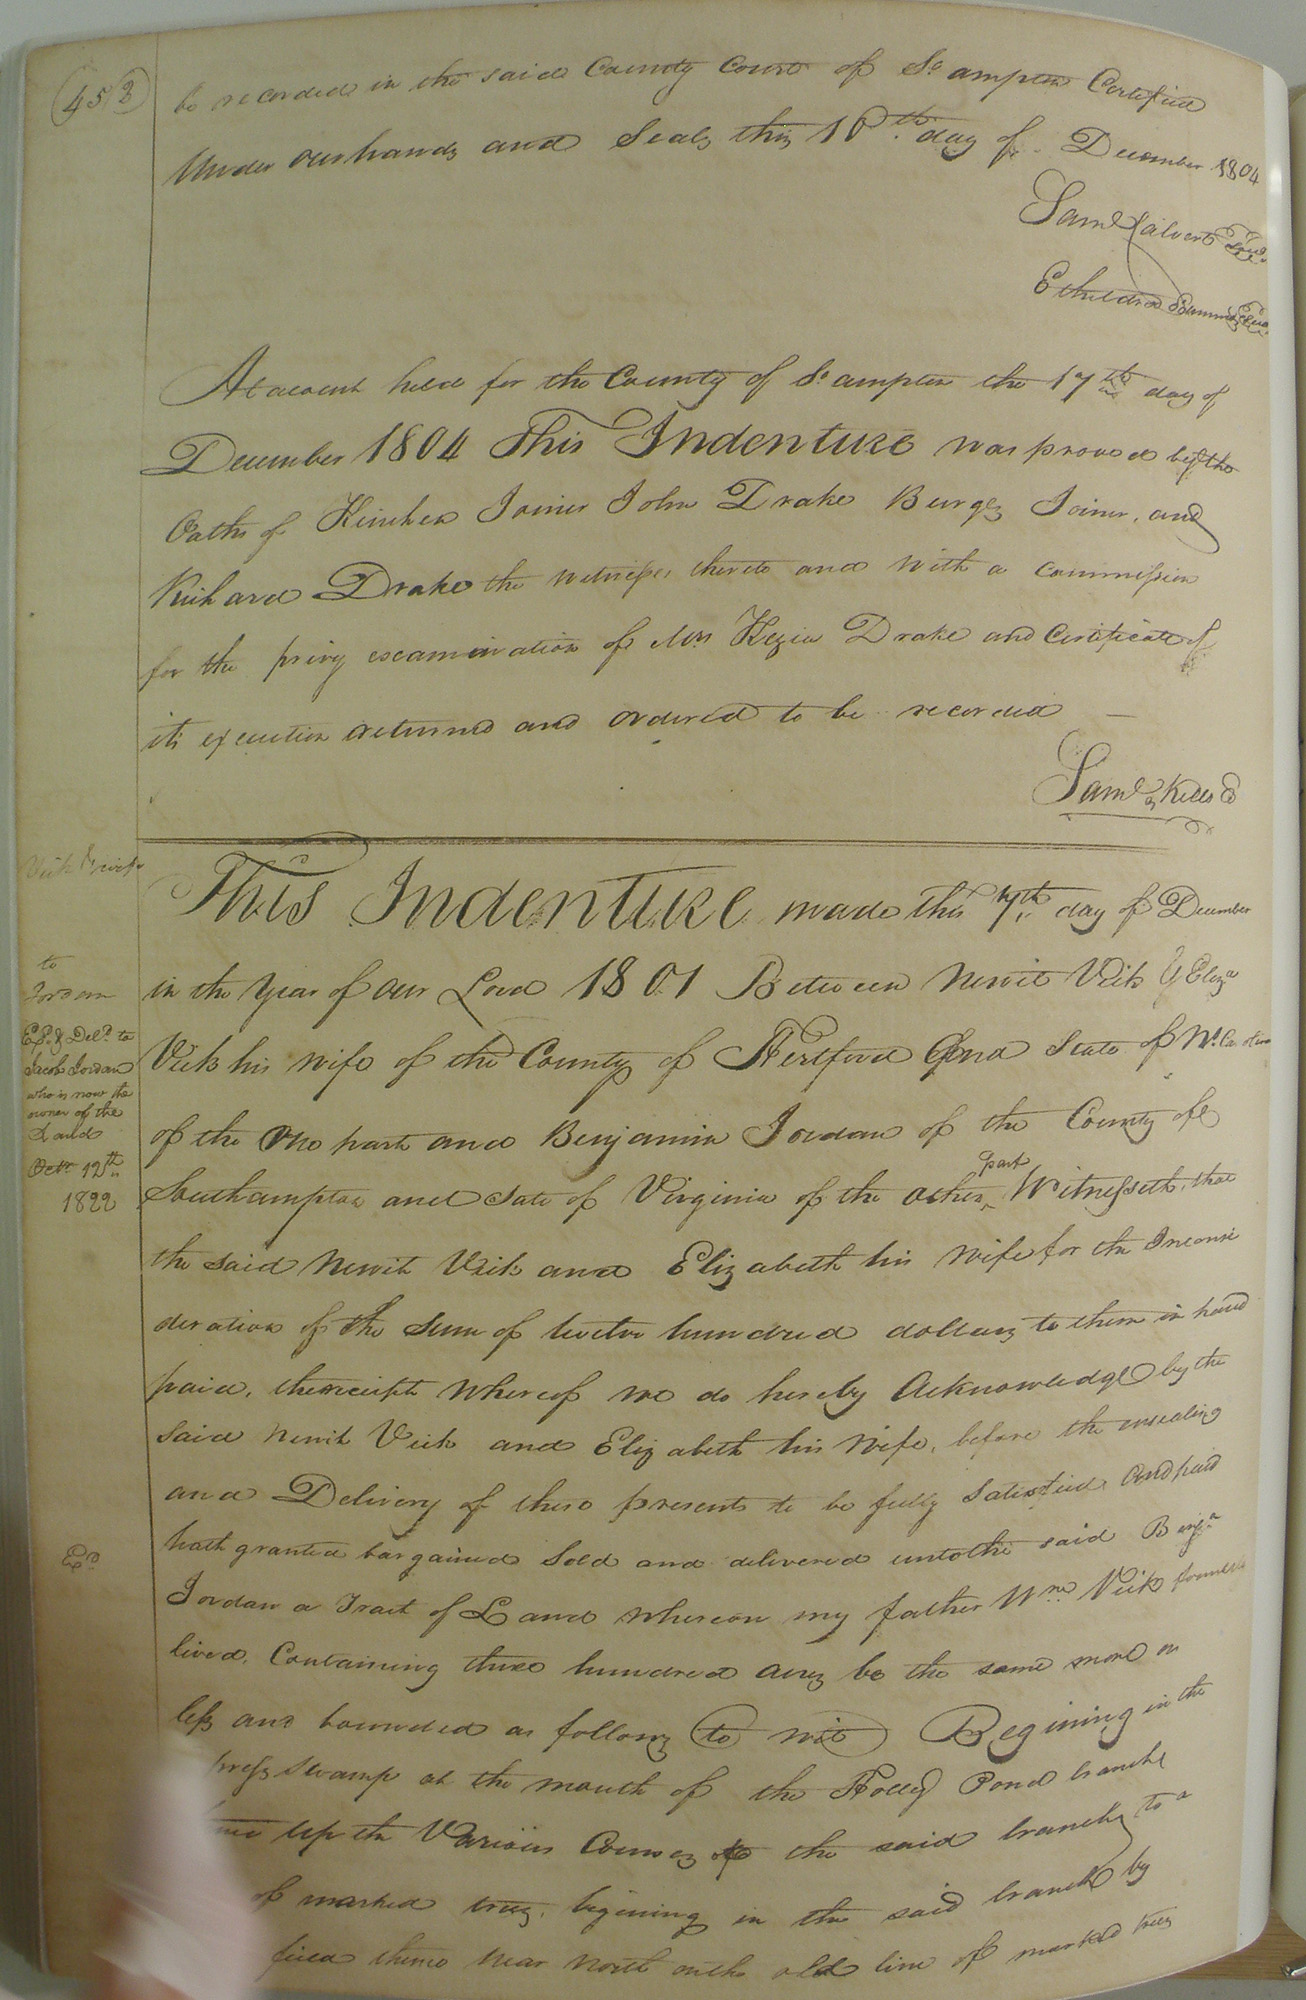 453
be recorded in the said County Court of So. ampton Certified
Under our hands and Seals this 10th day of December 1804
Saml Calvert
Etheldred
At a Court held for the County of So. ampton the 17th day of
December 1804 This Indenture was proved by the
Oaths of Kinchen Joiner John Drake Burges Joiner, and
Richard Drake the witnesses thereto and with a commission
for the privy examination of Mrs Kezia Drake and Certificate of
its execution returned and ordered to be recorded
Saml Kello
Vick & wife
to
Jordan
Ed. & Deld. to
Jacob Jordan
who is now the
owner of the
Land
Octr 12th
1822
Exd
This Indenture made this 7th day of December
in the Year of our Lord 1801 Between Newit Vick & Eliza
Vick his wife of the County of Hertford and State of No. Carolina
of the One part and Benjamin Jordan of the County of
Southampton and State of Virginia of the other part Witnesseth, that
the said Newit Vick and Elizabeth his wife for the Inconsi
deration of the Sum of twelve hundred dollars to them in hand
paid, the receipt whereof we do hereby Acknowledge by the
said Newit Vick and Elizabeth his Wife, before the ensealing
and Delivery of these presents to be fully Satisfied and paid
hath granted bargained Sold and delivered unto the said Benja
Jordan a Tract of Land whereon my father Wm Vick formerly
lived, Containing three hundred acres be the same more or
less and bounded as follows to wit Begining in the
swamp at the mouth of the Holley Pond branch
up the Various Courses of the said branch to a
of marked trees, begining in the said branch by
thence near North on the old line of marked trees